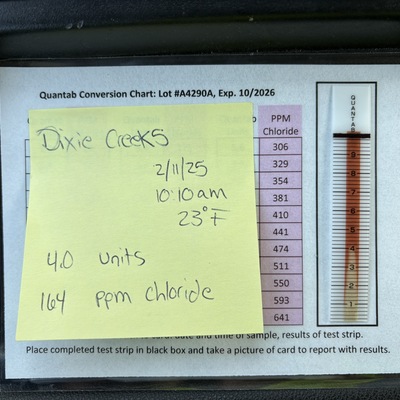 Quantab Conversion Chart: Lot #A4290A, Exp. 10/2026
PPM
Chloride
306
329
354
381
410
441
474
511
550
593
641
Dixie Creeks
2/11/25
10:10 am
23°F
4.0 units
164 ppm chloride
QUANTAB
9
8
7
6
5
4
3
2
1
date and time of sample, results of test strip.
Place completed test strip in black box and take a picture of card to report with results.